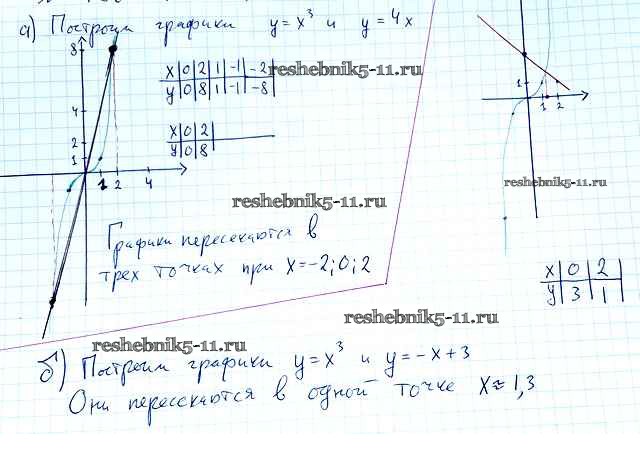 а) Построим графики y = x³ и y = 4x
x | 0 | 2 | 1 | -1 | -2
y | 0 | 8 | 1 | -1 | -8
reshebnik5-11.ru
x | 0 | 2
y | 0 | 8
8
4
2
1
1 2 4
1
1 2
reshebnik5-11.ru
reshebnik5-11.ru
Графики пересекаются в
трех точках при x=-2;0;2
x | 0 | 2
y | 3 | 1
reshebnik5-11.ru
reshebnik5-11.ru
б) Построим графики y = x³ и y = -x+3
Они пересекаются в одной точке x ≈ 1,3